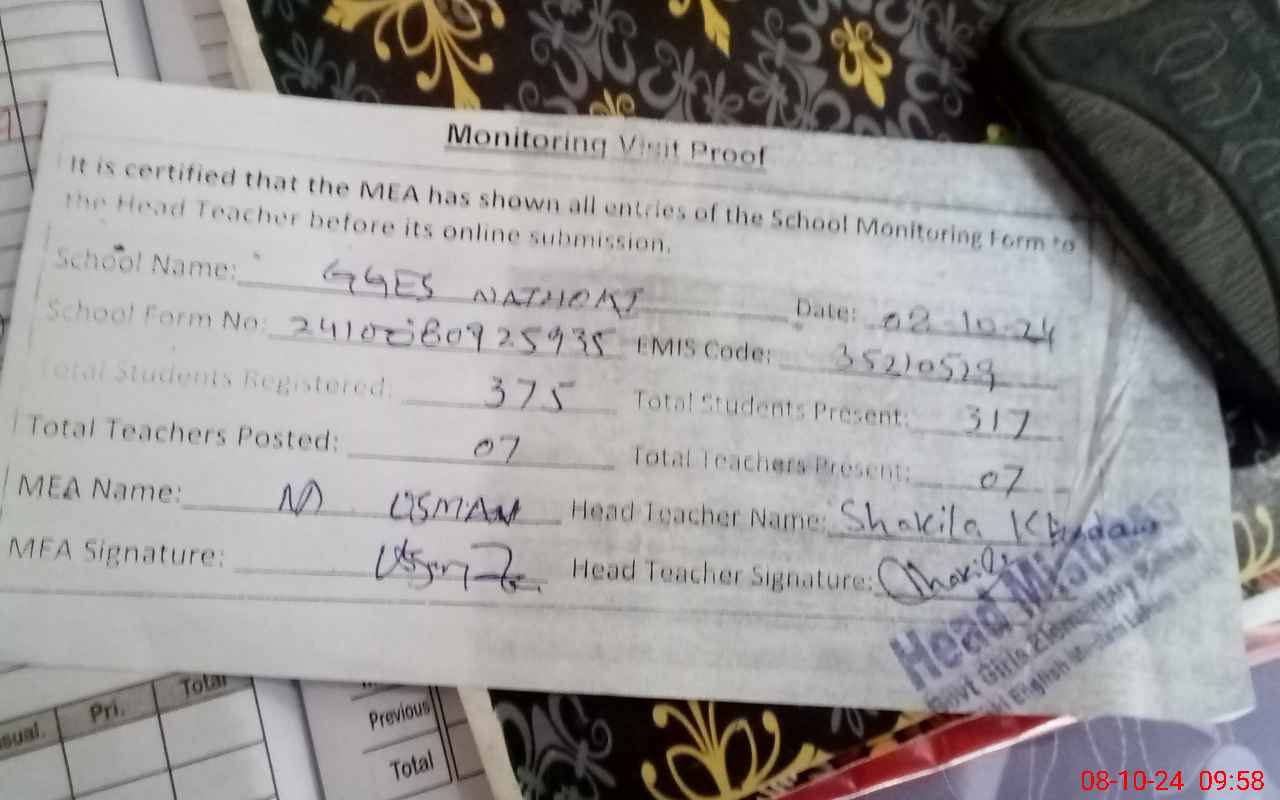 Monitoring Visit Proof
It is certified that the MEA has shown all entries of the School Monitoring Form to
the Head Teacher before its online submission.
School Name: GGES NATHOKI Date: 08-10-24
School Form No: EMIS Code: 35210529
Total Students Registered: 375 Total Students Present: 317
Total Teachers Posted: 07 Total Teachers Present: 07
MEA Name: M USMAN Head Teacher Name: Shakila
MEA Signature: Head Teacher Signature: Shakila
Head Mistress
Govt Girls Elementary School
English Medium
Pri. Total
Previous
Total
08-10-24 09:58